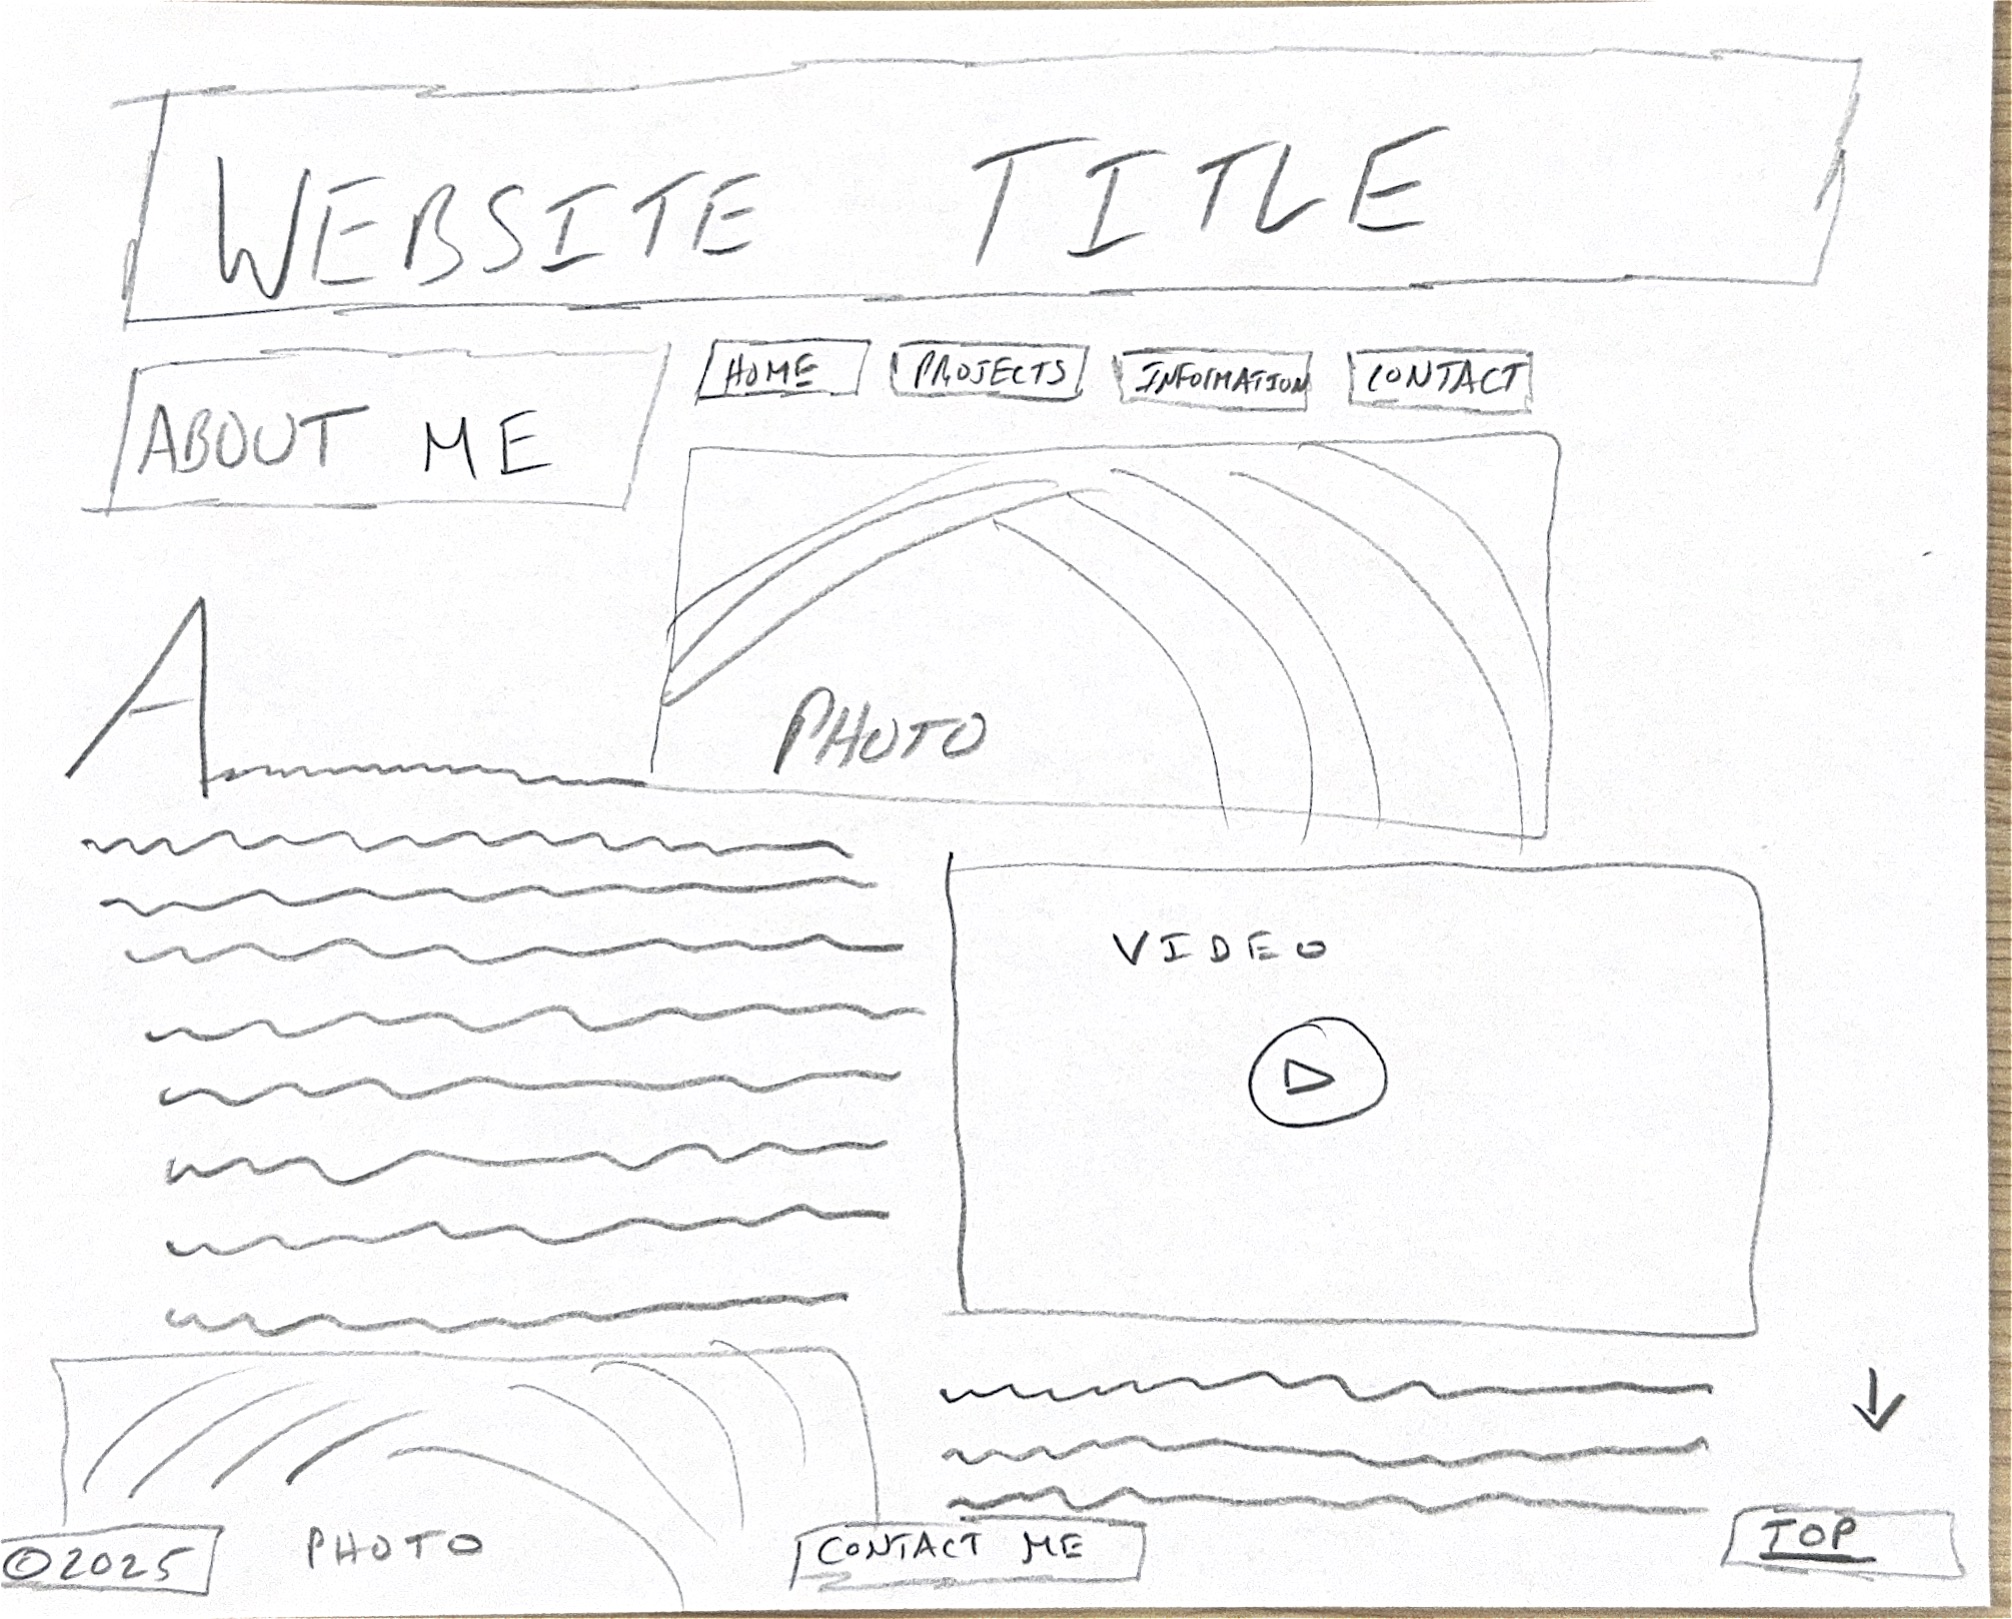 WEBSITE TITLE
HOME PROJECTS INFORMATION CONTACT
ABOUT ME
A
PHOTO
VIDEO
©2025 PHOTO CONTACT ME TOP